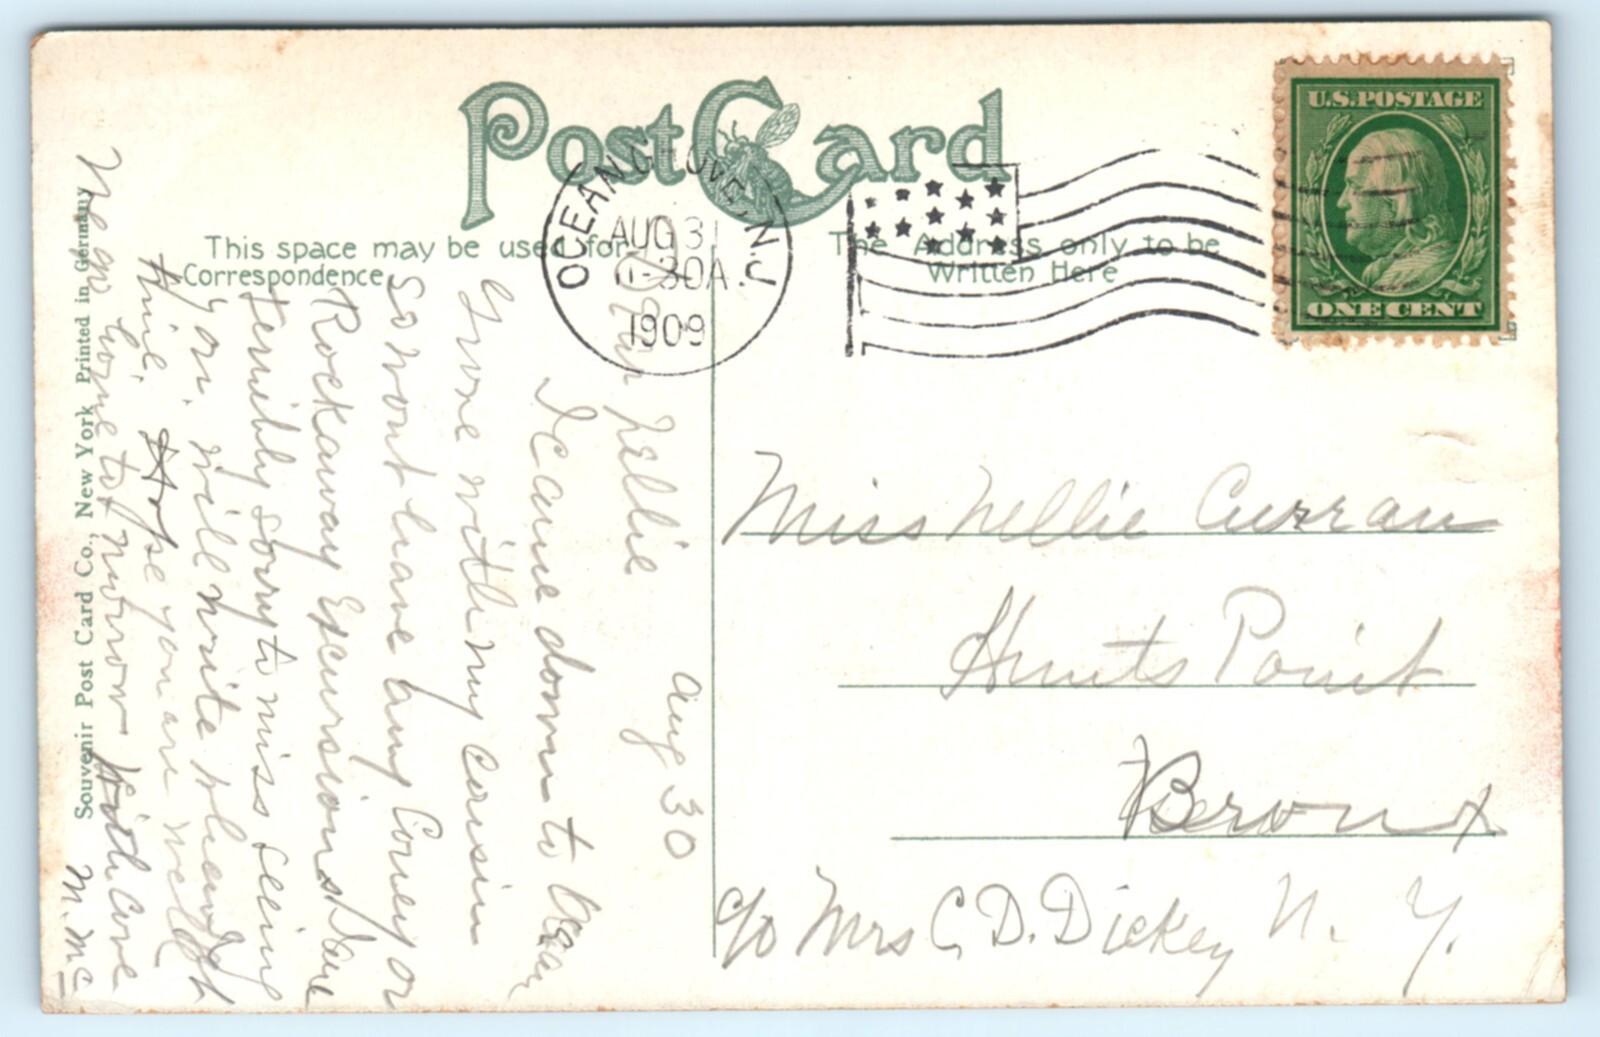 Post Card
This space may be used for
Correspondence
The Address only to be
Written Here
OCEAN GROVE, N.J.
AUG 31
11-30A
1909
U.S. POSTAGE
ONE CENT
Souvenir Post Card Co., New York Printed in Germany
Aug 30
Dear Nellie
I came down to Ocean
Grove with my cousin
so wont have any Coney or
Rockaway Excursions I am
terribly sorry to miss seeing
you. will write when I
time. Hope you are well
We go home to morrow With love
M. Mc
Miss Nellie Curran
Hunts Point
Bronx
c/o Mrs C. D. Dickey N. Y.